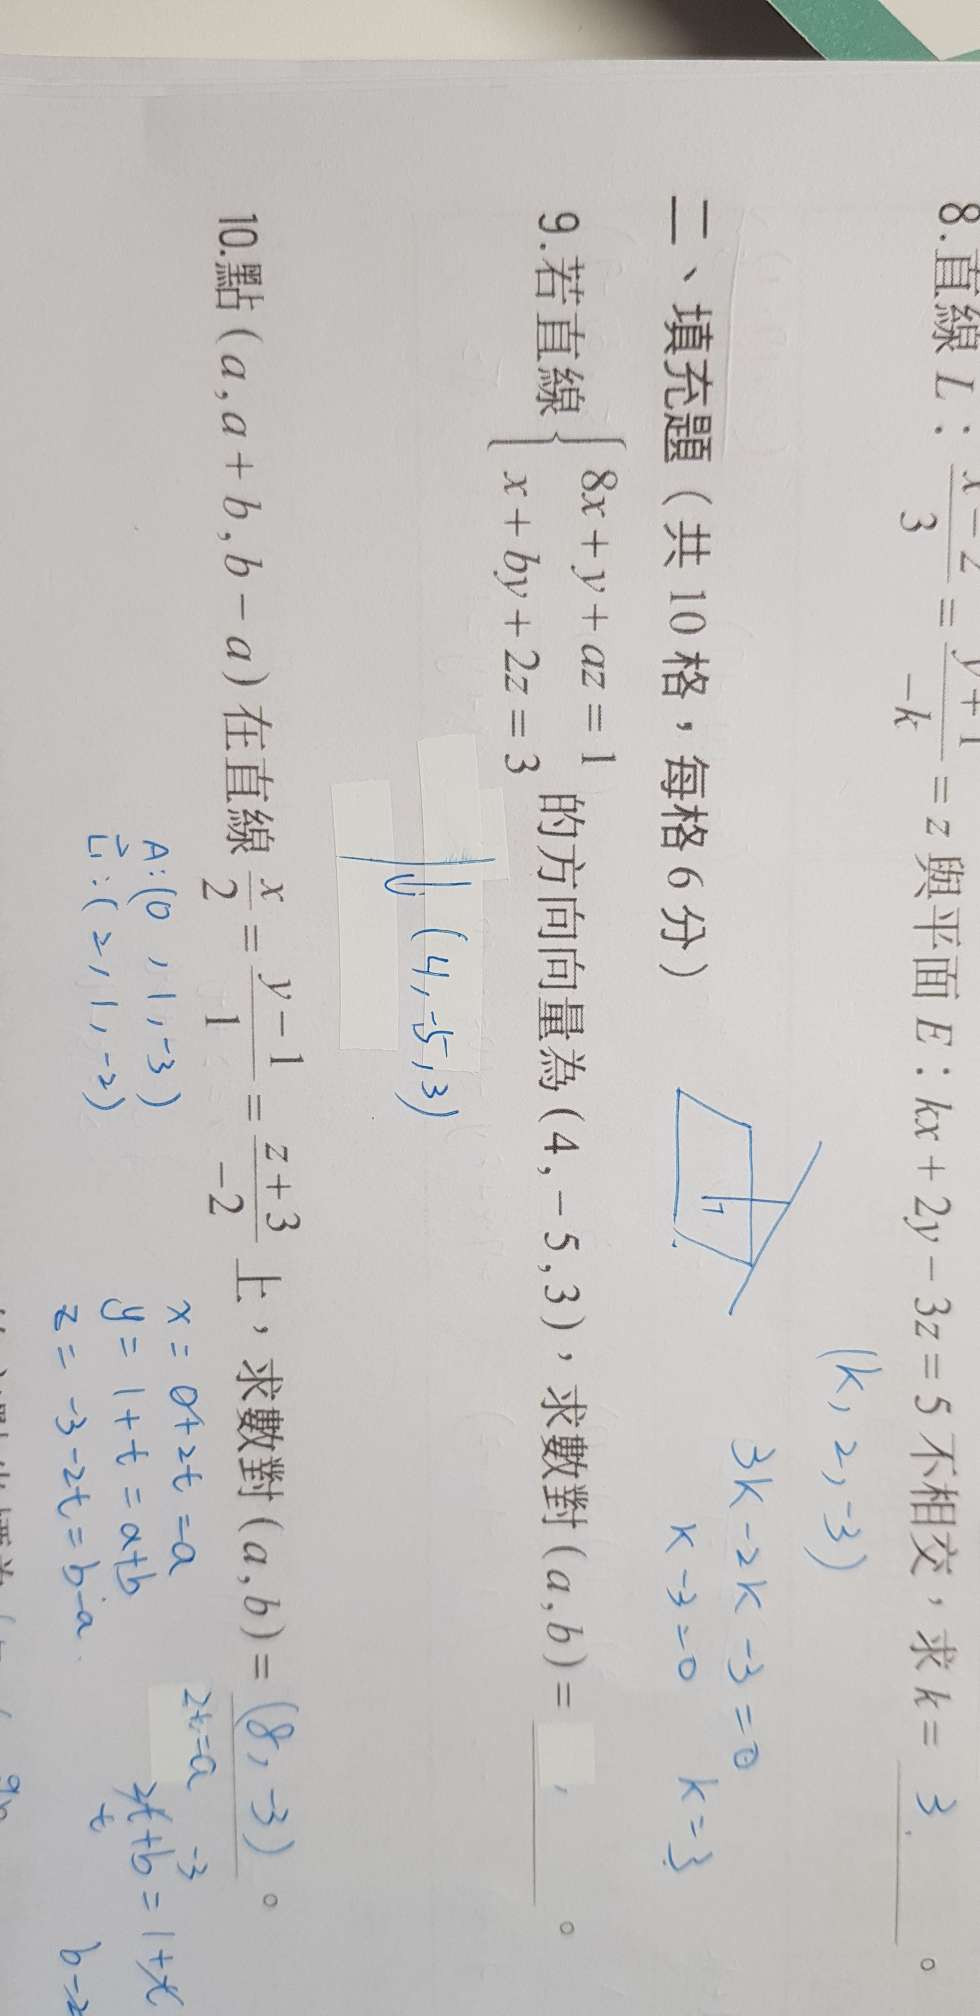 8.直線 L：x-2/3 = y+1/-k = z 與平面 E：kx+2y-3z=5 不相交，求 k= 3 。
(k, 2, -3)
3k-2k-3=0
k-3=0 k=3
二、填充題（共 10 格，每格 6 分）
9.若直線 { 8x+y+az=1
x+by+2z=3 的方向向量為 (4,-5,3)，求數對 (a,b)= 。
(4,-5,3)
10.點 (a,a+b,b-a) 在直線 x/2 = y-1/1 = z+3/-2 上，求數對 (a,b)= (8,-3) 。
A:(0,1,-3)
(2,1,-2)
x=0+2t=a
y=1+t=a+b
z=-3-2t=b-a
2t=a
2t+b=1+t
-3
t